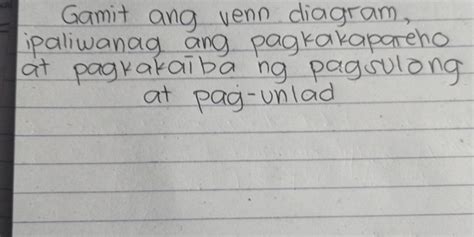 Gamit ang venn diagram,
ipaliwanag ang pagkakapareho
at pagkakaiba ng pagsulong
at pag-unlad